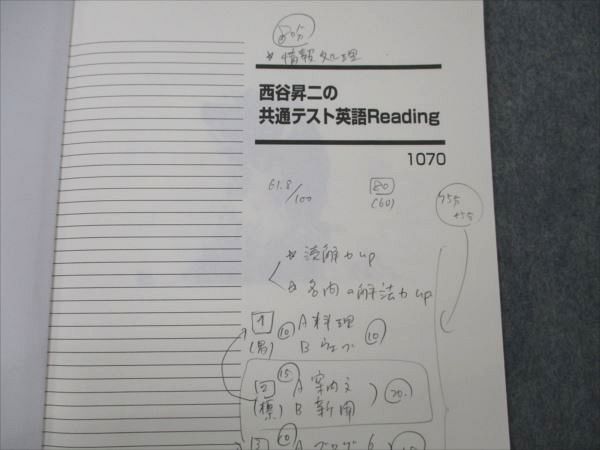 80分
* 情報処理
西谷昇二の
共通テスト英語Reading
1070
61.8/100
80
(60)
75分
* 読解力up
* 各問の解法力up
1 (易) ⑩ A 料理
B ウェブ ⑩
2 (標) ⑮ A 案内文
B 新聞 20
3 ⑩ A ブログ 6